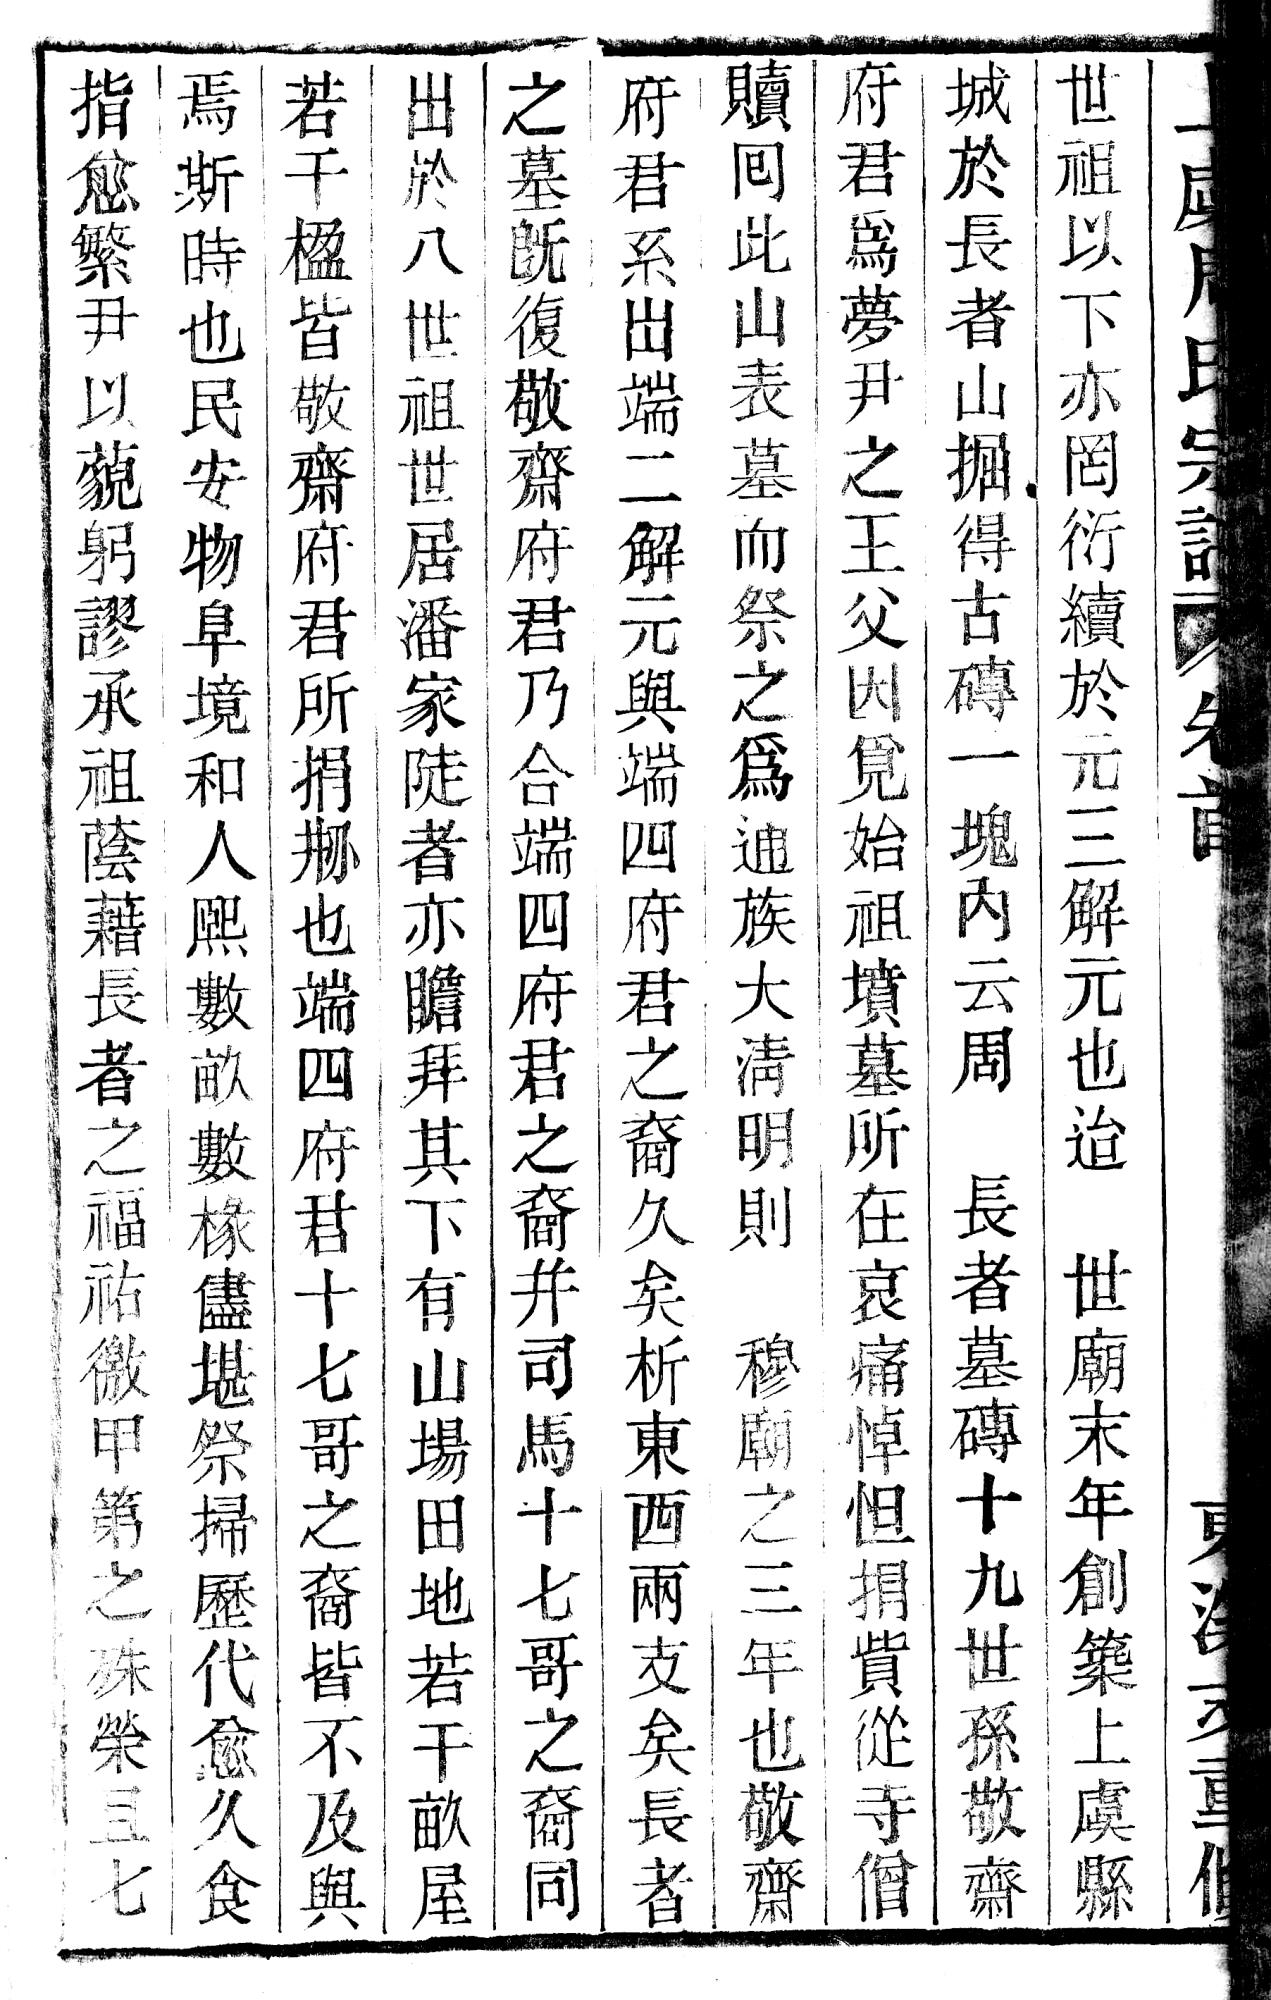 上虞周氏宗譜 卷首 重修
世祖以下亦罔衍續於元三解元也迨 世廟末年創築上虞縣
城於長者山掘得古磚一塊內云周 長者墓磚十九世孫敬齋
府君爲夢尹之王父因覓始祖墳墓所在哀痛悼怛捐貲從寺僧
贖回此山表墓而祭之爲迪族大清明則 穆廟之三年也敬齋
府君系出端二解元與端四府君之裔久矣析東西兩支矣長者
之墓旣復敬齋府君乃合端四府君之裔并司馬十七哥之裔同
出於八世祖世居潘家陡者亦瞻拜其下有山場田地若干畝屋
若干楹皆敬齋府君所捐剏也端四府君十七哥之裔皆不及與
焉斯時也民安物阜境和人熙數畝數椽儘堪祭掃歷代愈久食
指愈繁尹以藐躬謬承祖蔭藉長者之福祐徼甲第之殊榮且七